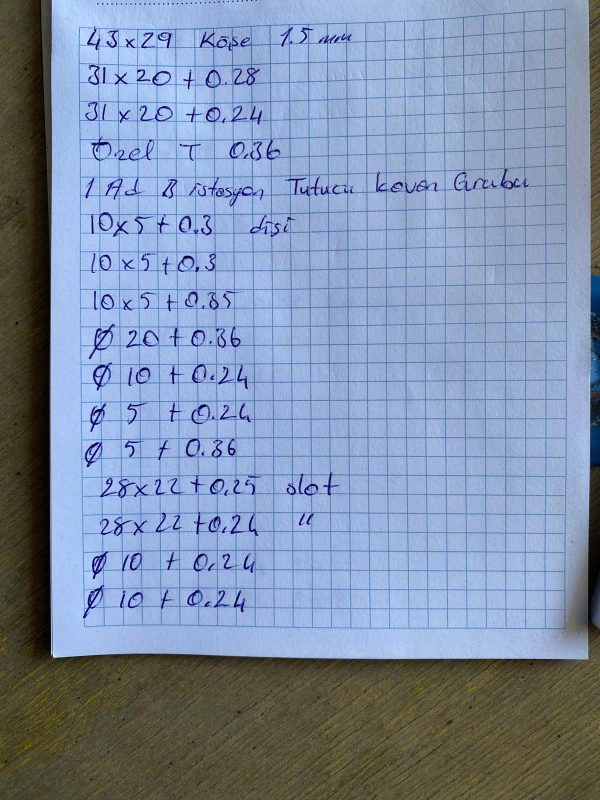 43x29 Köşe 1.5 mm
31x20 + 0.28
31x20 + 0.24
Özel T 0.36
1 Ad B istasyon Tutucu kovan Grubu
10x5 + 0.3 dişi
10x5 + 0.3
10x5 + 0.35
Ø 20 + 0.36
Ø 10 + 0.24
Ø 5 + 0.24
Ø 5 + 0.36
28x22 + 0.25 slot
28x22 + 0.24 "
Ø 10 + 0.24
Ø 10 + 0.24